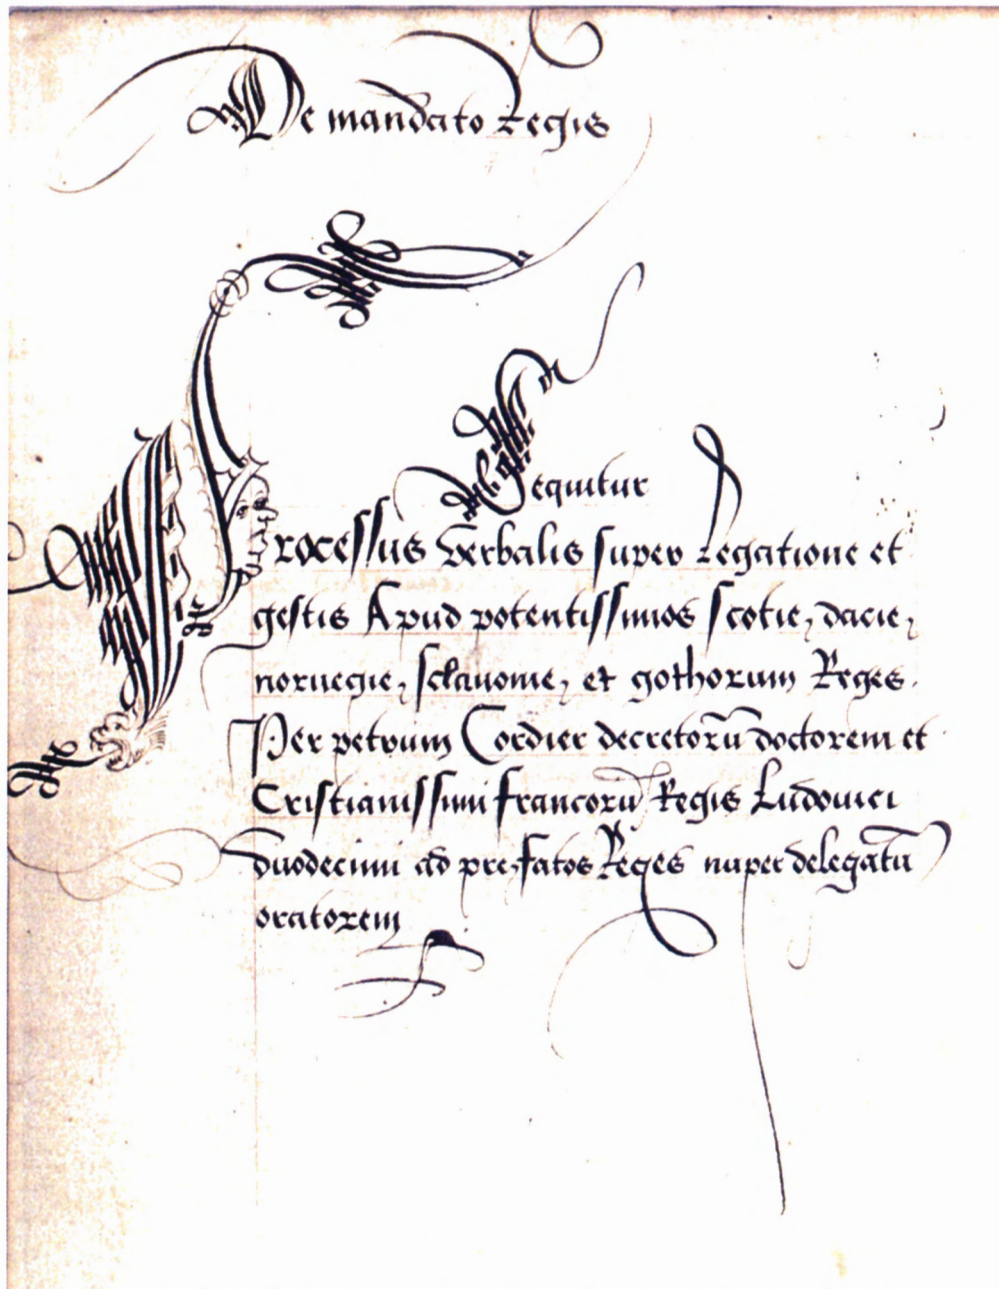 De mandato Regis
Sequitur
Processus verbalis super legatione et
gestis Apud potentissimos scotie, dacie,
noruegie, sclauonie, et gothorum Reges.
Per petrum Cordier decretorū doctorem et
Cristianissimi francorū Regis Ludouici
duodecimi ad prefatos Reges nuper delegatū
oratorem